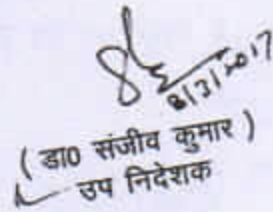 8/3/2017
( डा0 संजीव कुमार )
उप निदेशक